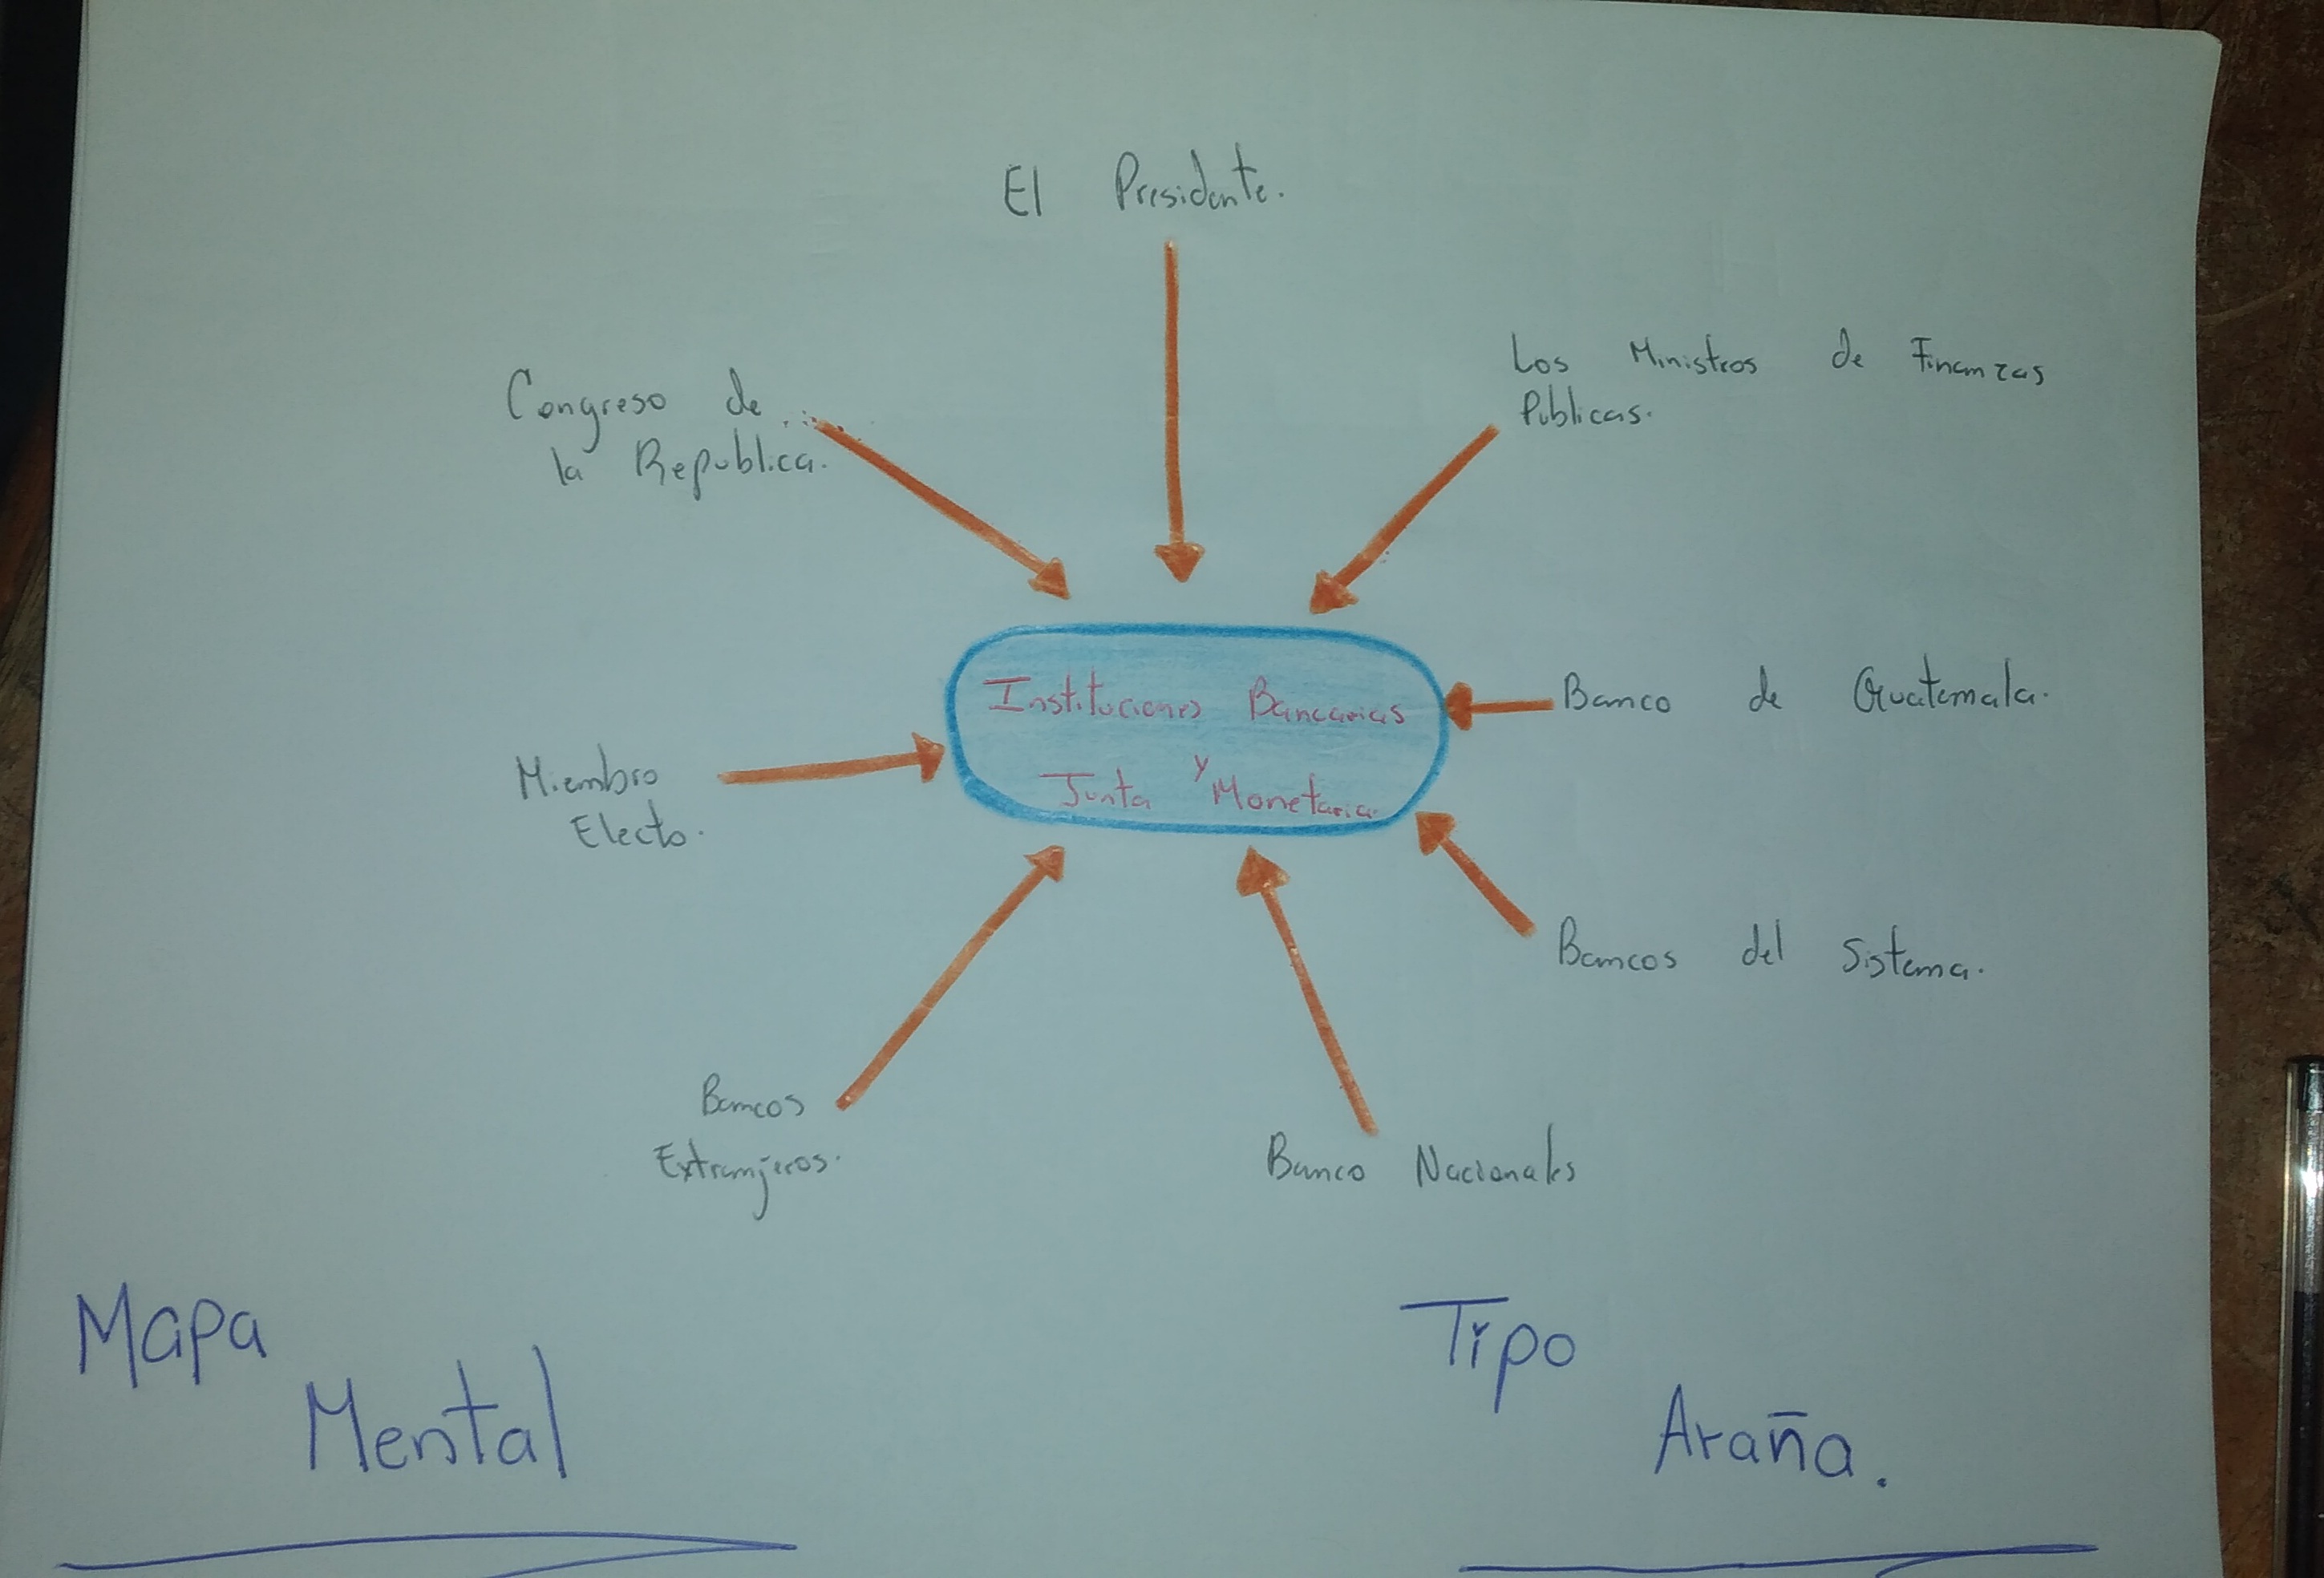 El Presidente.
Congreso de
la Republica.
Los Ministros de Finanzas
Publicas.
Instituciones Bancarias
y
Junta Monetaria
Banco de Guatemala.
Miembro
Electo.
Bancos del Sistema.
Bancos
Extranjeros.
Banco Nacionales
Mapa
Mental
Tipo
Araña.